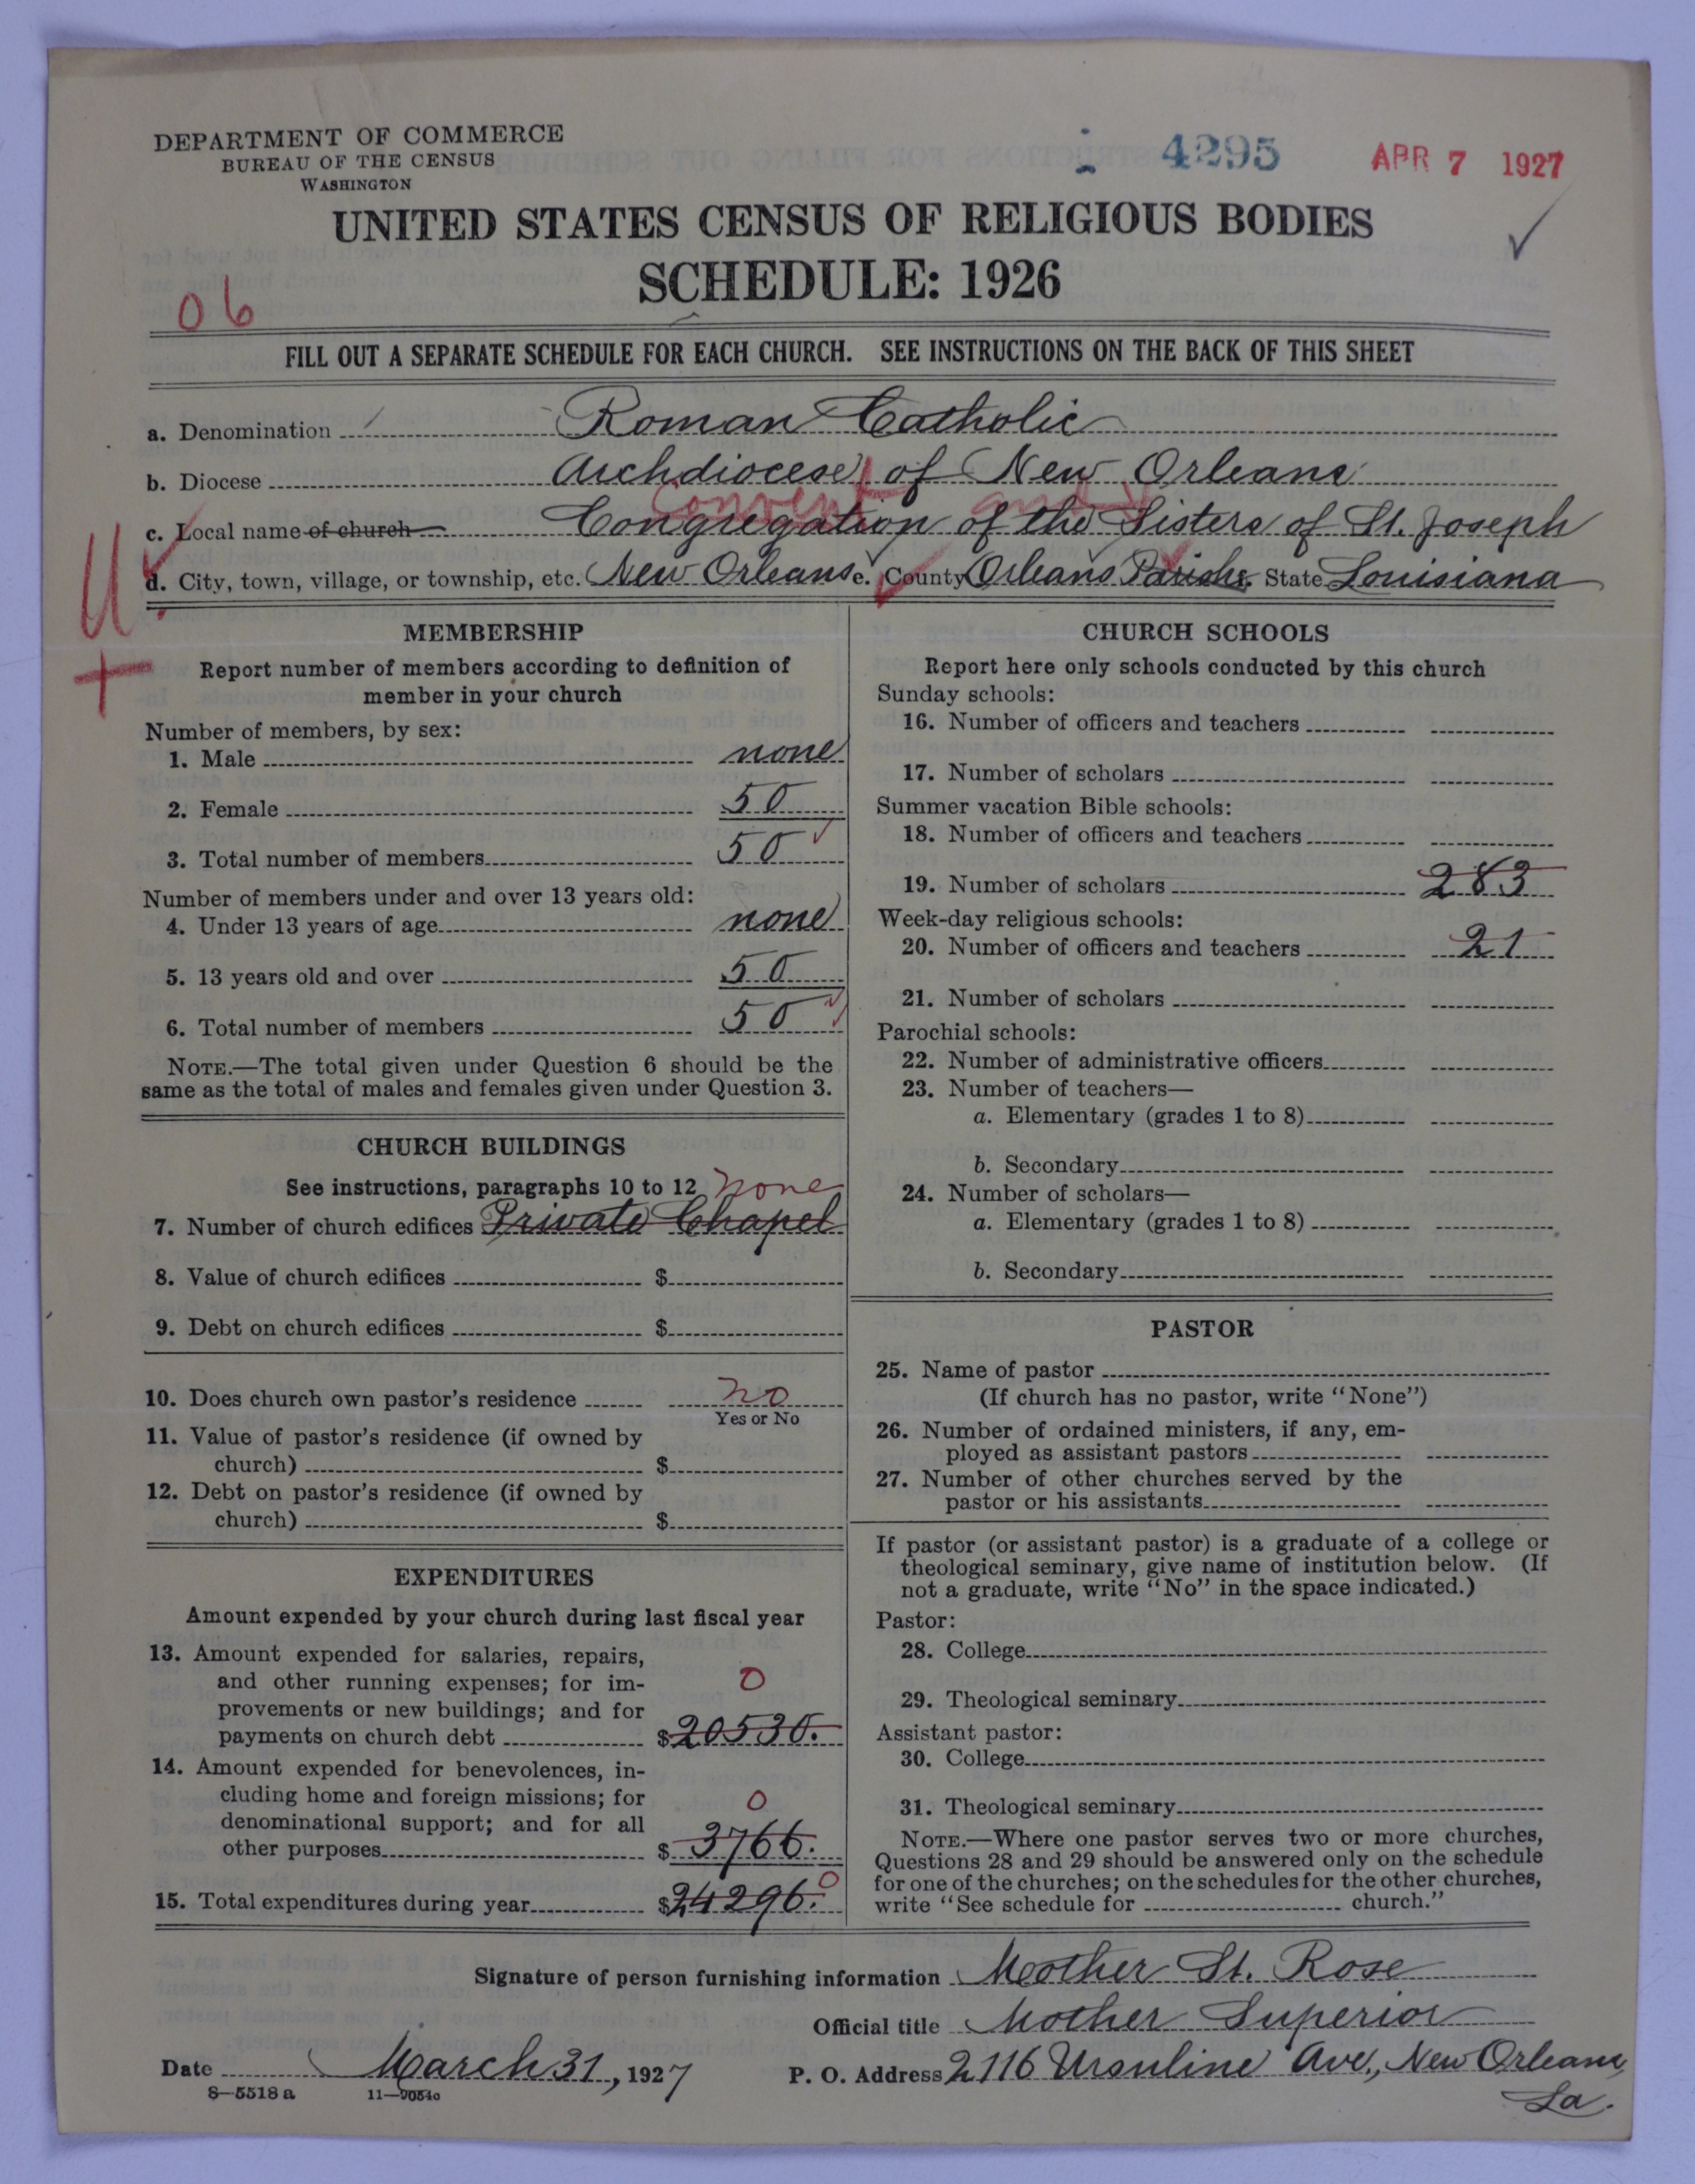 DEPARTMENT OF COMMERCE
BUREAU OF THE CENSUS
WASHINGTON
4295
APR 7 1927
UNITED STATES CENSUS OF RELIGIOUS BODIES
SCHEDULE: 1926
06
FILL OUT A SEPARATE SCHEDULE FOR EACH CHURCH. SEE INSTRUCTIONS ON THE BACK OF THIS SHEET
a. Denomination Roman Catholic
b. Diocese Archdiocese of New Orleans
Convent and
c. Local name of church Congregation of the Sisters of St. Joseph
d. City, town, village, or township, etc. New Orleans e. County Orleans Parish f. State Louisiana
MEMBERSHIP
Report number of members according to definition of
member in your church
Number of members, by sex:
1. Male none
2. Female 50
3. Total number of members 50
Number of members under and over 13 years old:
4. Under 13 years of age none
5. 13 years old and over 50
6. Total number of members 50
NOTE.—The total given under Question 6 should be the
same as the total of males and females given under Question 3.
CHURCH BUILDINGS
See instructions, paragraphs 10 to 12 none
7. Number of church edifices Private Chapel
8. Value of church edifices $
9. Debt on church edifices $
10. Does church own pastor's residence no
Yes or No
11. Value of pastor's residence (if owned by
church) $
12. Debt on pastor's residence (if owned by
church) $
EXPENDITURES
Amount expended by your church during last fiscal year
13. Amount expended for salaries, repairs,
and other running expenses; for im-
0
provements or new buildings; and for
payments on church debt $20530.
14. Amount expended for benevolences, in-
cluding home and foreign missions; for 0
denominational support; and for all
other purposes $ 3766.
0
15. Total expenditures during year $24296.
CHURCH SCHOOLS
Report here only schools conducted by this church
Sunday schools:
16. Number of officers and teachers
17. Number of scholars
Summer vacation Bible schools:
18. Number of officers and teachers
19. Number of scholars 283
Week-day religious schools:
20. Number of officers and teachers 21
21. Number of scholars
Parochial schools:
22. Number of administrative officers
23. Number of teachers—
a. Elementary (grades 1 to 8)
b. Secondary
24. Number of scholars—
a. Elementary (grades 1 to 8)
b. Secondary
PASTOR
25. Name of pastor
(If church has no pastor, write "None")
26. Number of ordained ministers, if any, em-
ployed as assistant pastors
27. Number of other churches served by the
pastor or his assistants
If pastor (or assistant pastor) is a graduate of a college or
theological seminary, give name of institution below. (If
not a graduate, write "No" in the space indicated.)
Pastor:
28. College
29. Theological seminary
Assistant pastor:
30. College
31. Theological seminary
NOTE.—Where one pastor serves two or more churches,
Questions 28 and 29 should be answered only on the schedule
for one of the churches; on the schedules for the other churches,
write "See schedule for church."
Signature of person furnishing information Mother St. Rose
Official title Mother Superior
Date March 31, 1927 P. O. Address 2116 Ursuline Ave., New Orleans,
La.
8—5518 a 11—9054c